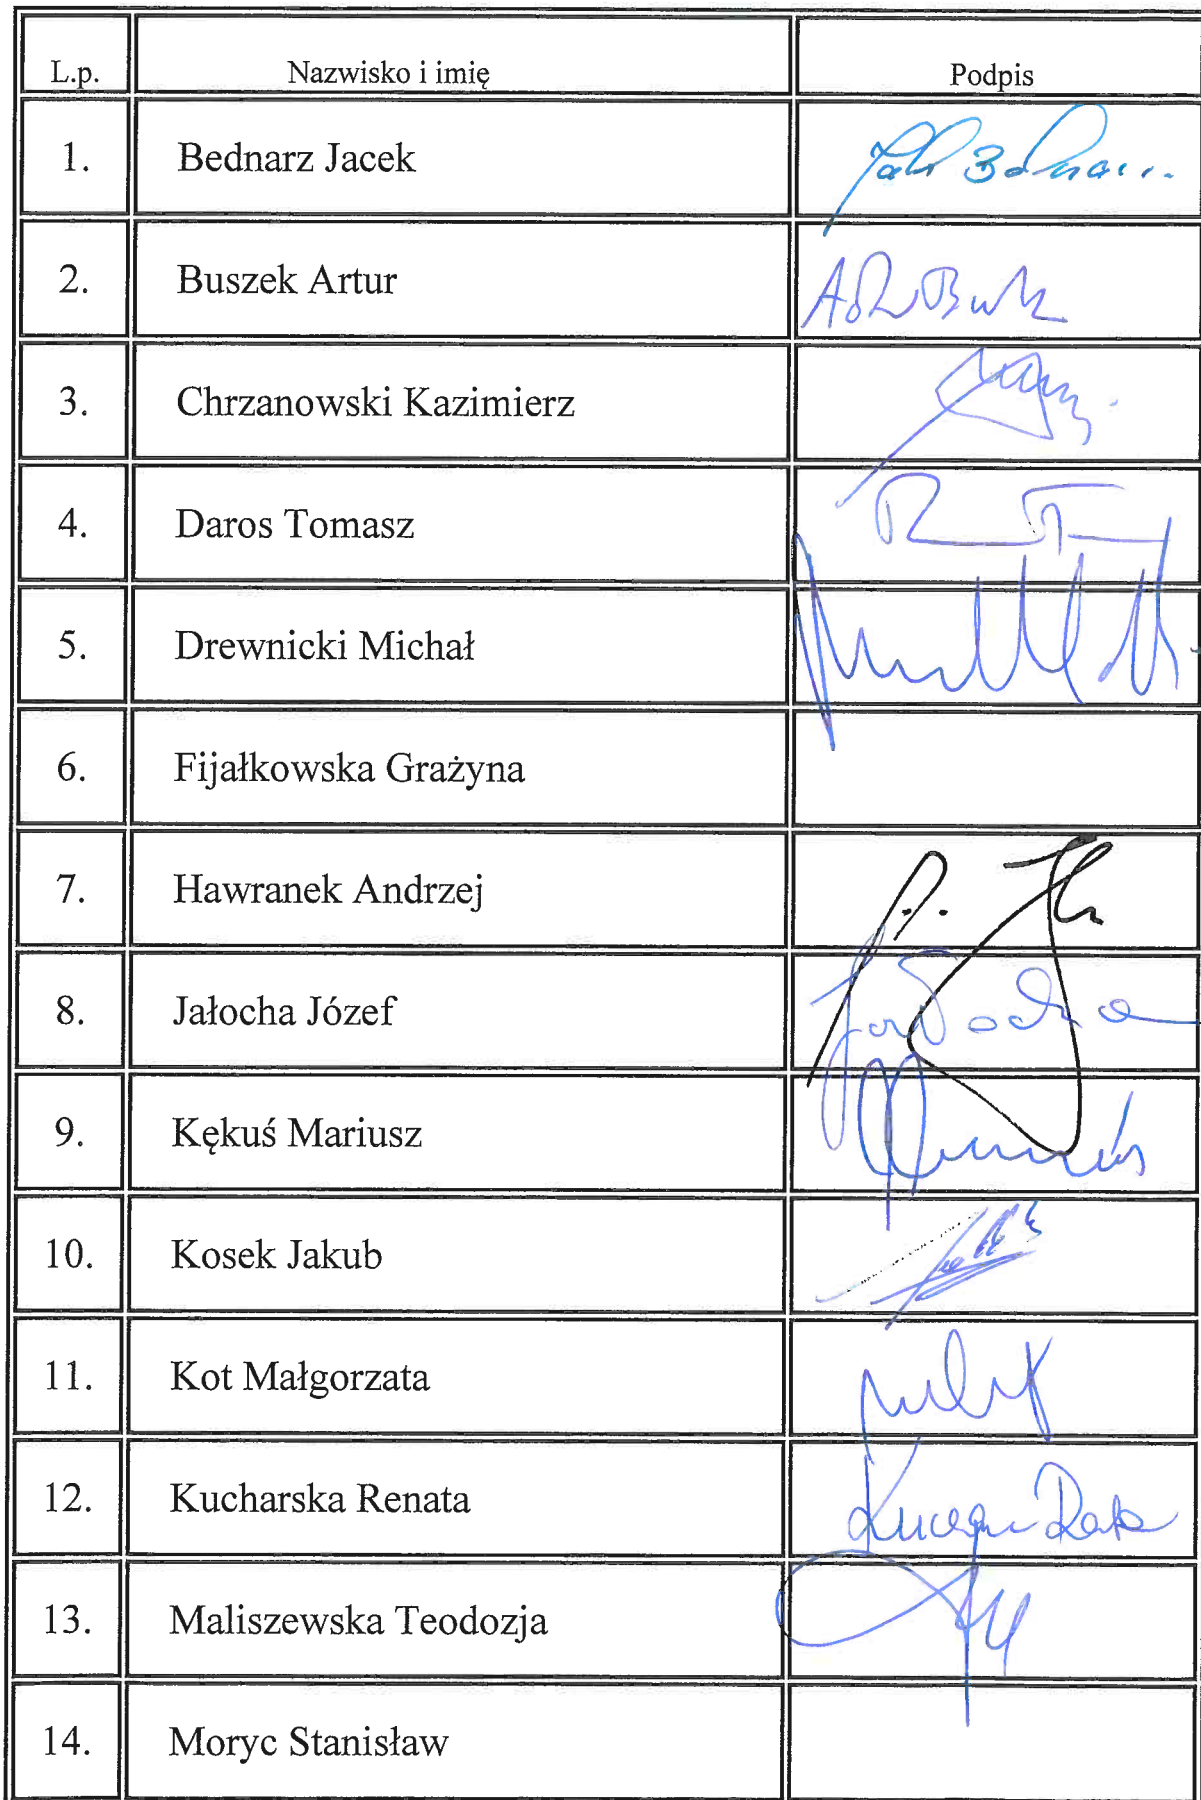 L.p. Nazwisko i imię Podpis
1. Bednarz Jacek
2. Buszek Artur
3. Chrzanowski Kazimierz
4. Daros Tomasz
5. Drewnicki Michał
6. Fijałkowska Grażyna
7. Hawranek Andrzej
8. Jałocha Józef Jałocha
9. Kękuś Mariusz
10. Kosek Jakub
11. Kot Małgorzata
12. Kucharska Renata
13. Maliszewska Teodozja
14. Moryc Stanisław